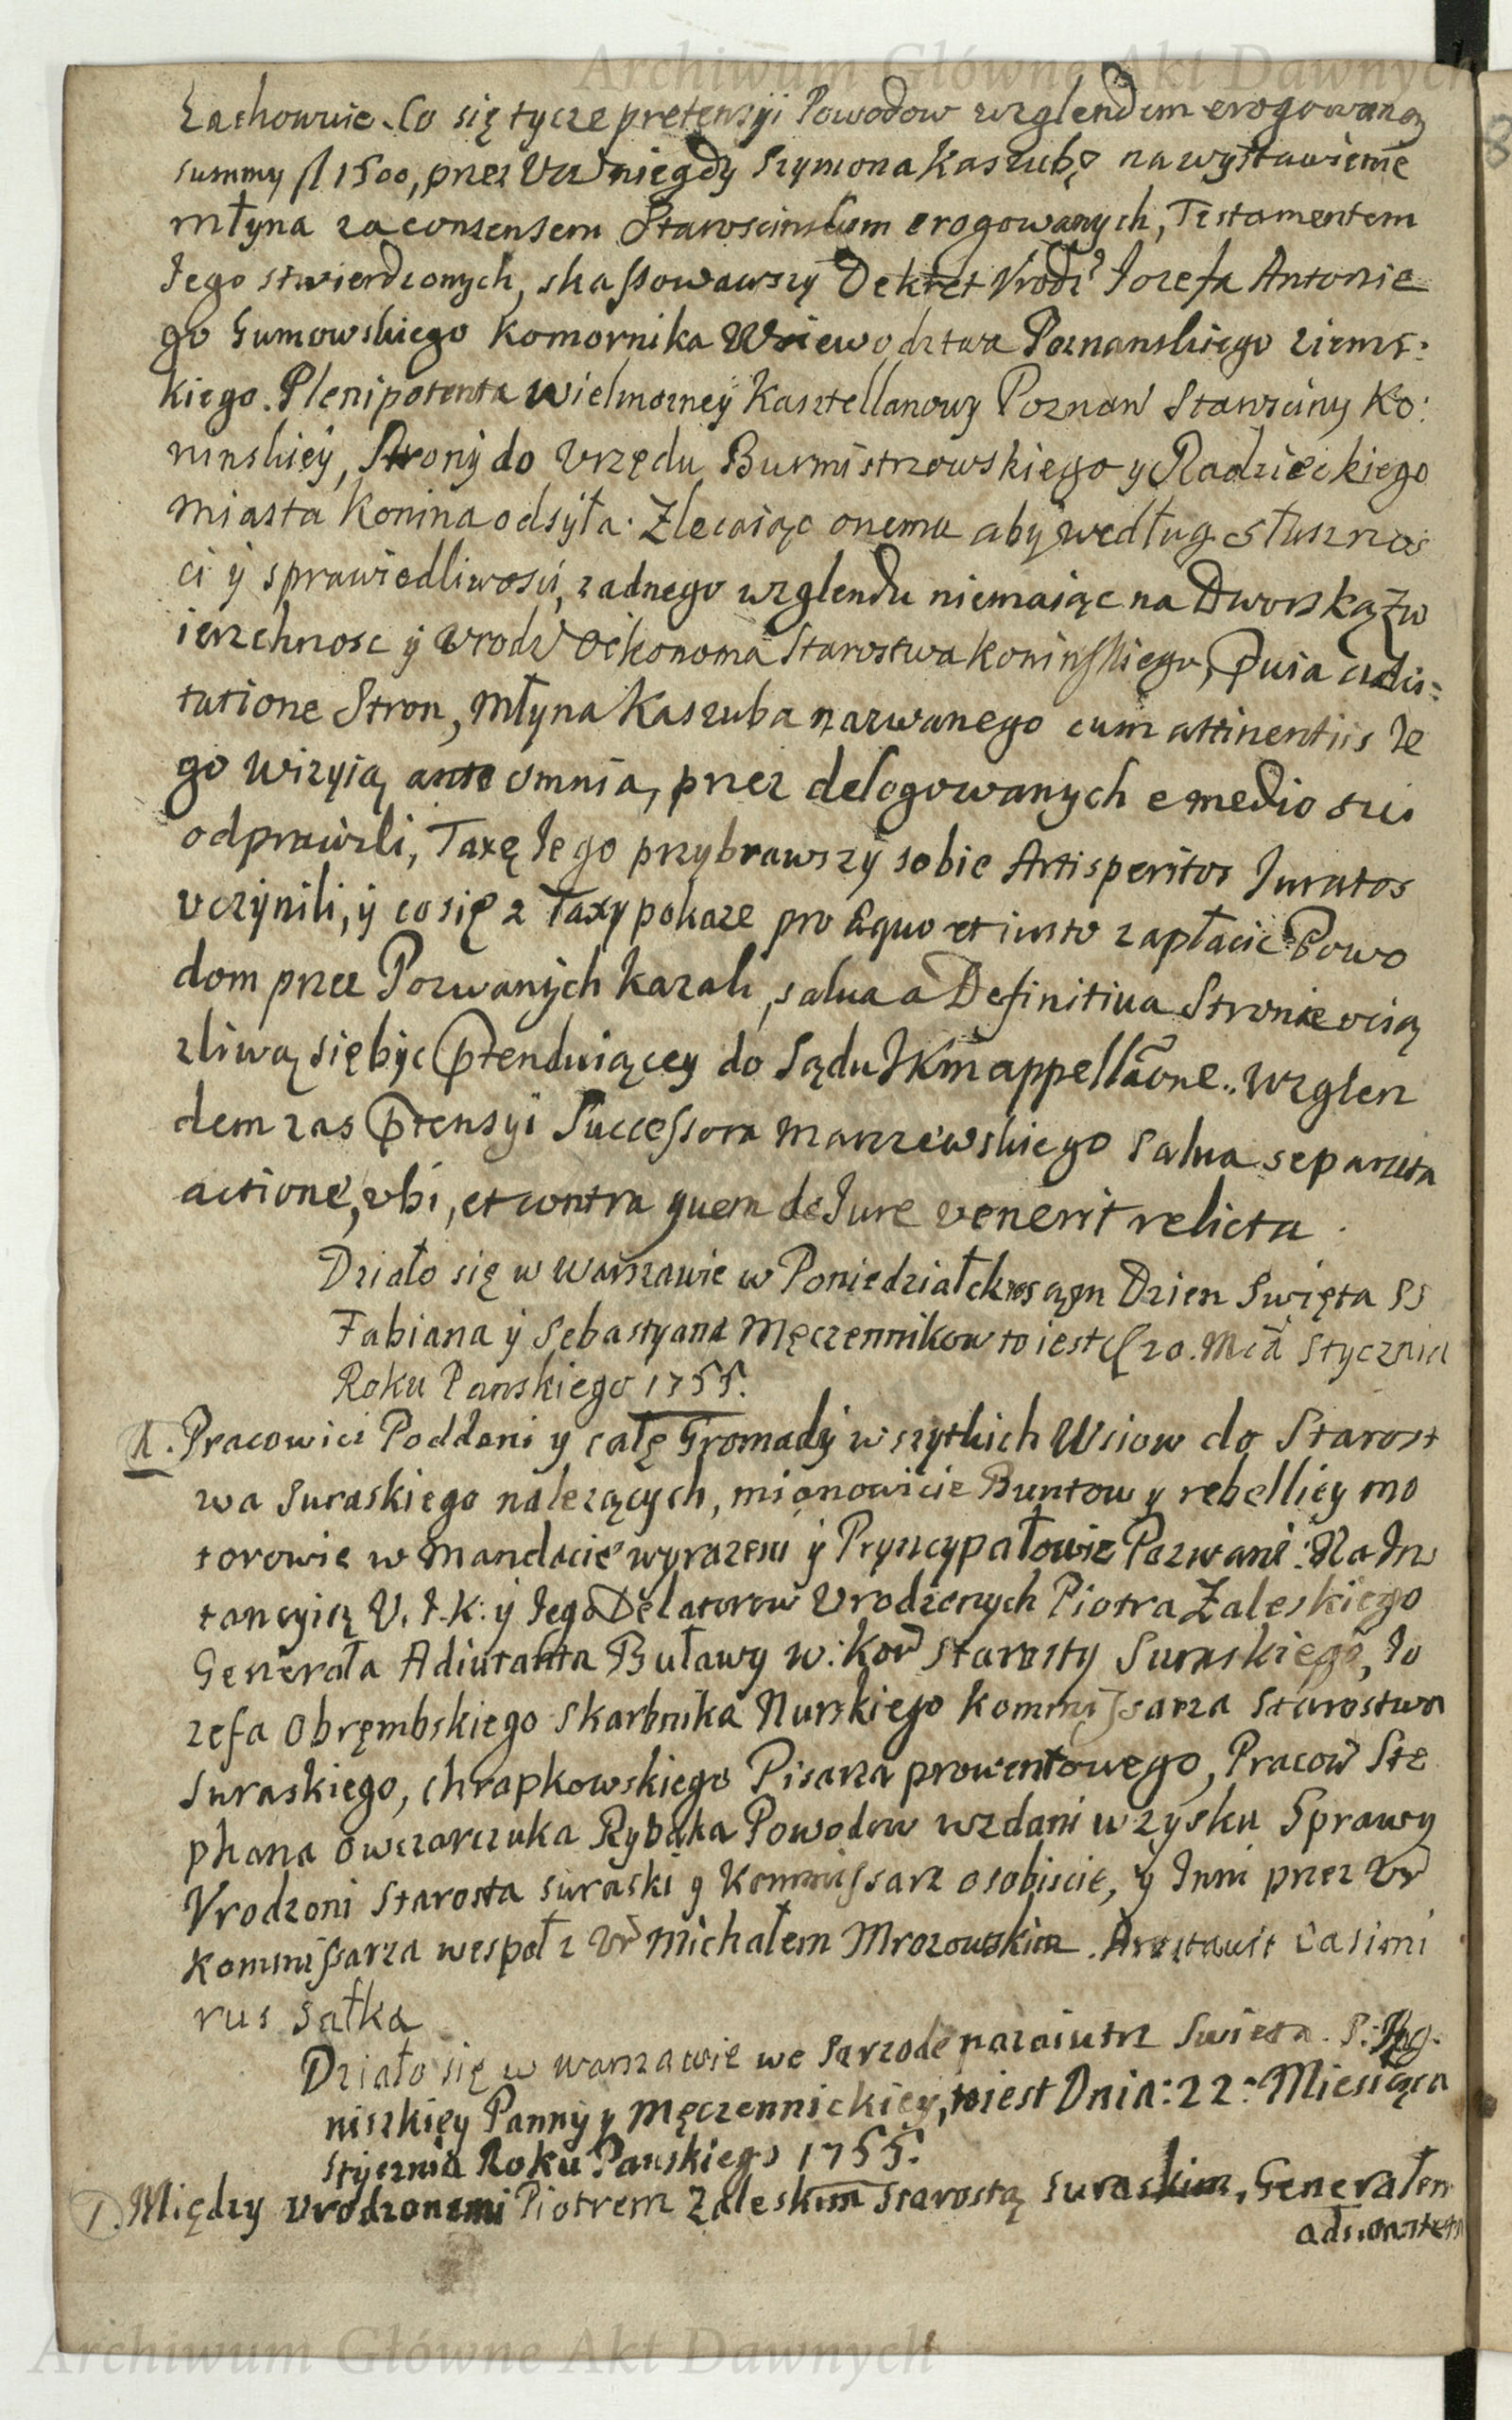 Archiwum Główne Akt Dawnych
Zachowuie. Co się tycze pretensyi Powodow wzglendem erogowaney
summy fl 1500, przez Vr niegdy Szymona Kaszubę na wystawienie
młyna za consensem Staroscinskim erogowanych, Testamentem
Jego stwierdzonych, skassowawszy Dekret Vrodz Jozefa Antonie
go Gumowskiego Komornika Woiewodztwa Poznanskiego ziems:
kiego. Plenipotenta Wielmozney Kasztellanowy Poznan Starosciny Ko:
ninskiey, Strony do Vrzędu Burmistrzowskiego y Radzieckiego
Miasta Konina odsyła. Zlecaiąc onemu aby według słusznos
ci ÿ sprawiedliwosci, zadnego wzglendu niemaiąc na Dworską Zw
ierzchnosc ÿ Vrodz Oekonoma Starostwa Koninskiego,
tatione Stron, Młyna Kaszuba nazwanego cum attinentiis Je
go wizyią ante omnia, przez delegowanych e medio sui
odprawili, Taxę Jego przybrawszy sobie Artisperitos Juratos
vczynili, ÿ co się z Taxy pokaze pro aequo et iusto zapłacic Powo
dom przez Pozwanych kazali, salva a Definitiva Stronie vcią
zliwą się byc ptenduiącey do Sądu JKm appellaone. Wzglen
dem zas ptensyi Successora Marszewskiego salva separata
actione, vbi, et contra quem de Jure venerit relicta.
Działo się w Warszawie w Poniedziałek Dzien Swięta SS
Fabiana ÿ Sebastyana Męczennikow to iest 20. Mca Stycznia
Roku Panskiego 1755.
Pracowici Poddani y całe Gromady wszytkich Wsiow do Starost
wa Suraskiego nalezących, mianowicie Buntow y rebelliey mo
torowie w Mandacie wyrazeni ÿ Pryncypałowie Pozwani: Na Ins
tancyią V. J. K: ÿ Jego Delatorow Vrodzonych Piotra Zaleskiego
Generała Adiutanta Buławy w: Kor Starosty Suraskiego, Jo
zefa Obrębskiego Skarbnika Nurskiego Kommissarza Starostwa
Suraskiego, Chrapkowskiego Pisarza prowentowego, Pracow Ste
phana Owczarczuka Rybaka Powodow wzdani w zysku Sprawy
Vrodzoni Starosta suraski y Kommissarz osobiscie, y Inni przez Vr
Kommissarza wespoł z Vr Michałem Mrozowskim. Arestavit Casimi
rus Sałka
Działo się w Warszawie we Srzode nazaiutrz Swięta S: Ag.
niszkięy Panny y Męczennickiey, to iest Dnia: 22: Miesiąca
Stycznia Roku Panskiego 1755.
1. Między Vrodzonemi Piotrem Zaleskim Starostą Suraskim, Generałem
adiutantem
Archiwum Główne Akt Dawnych